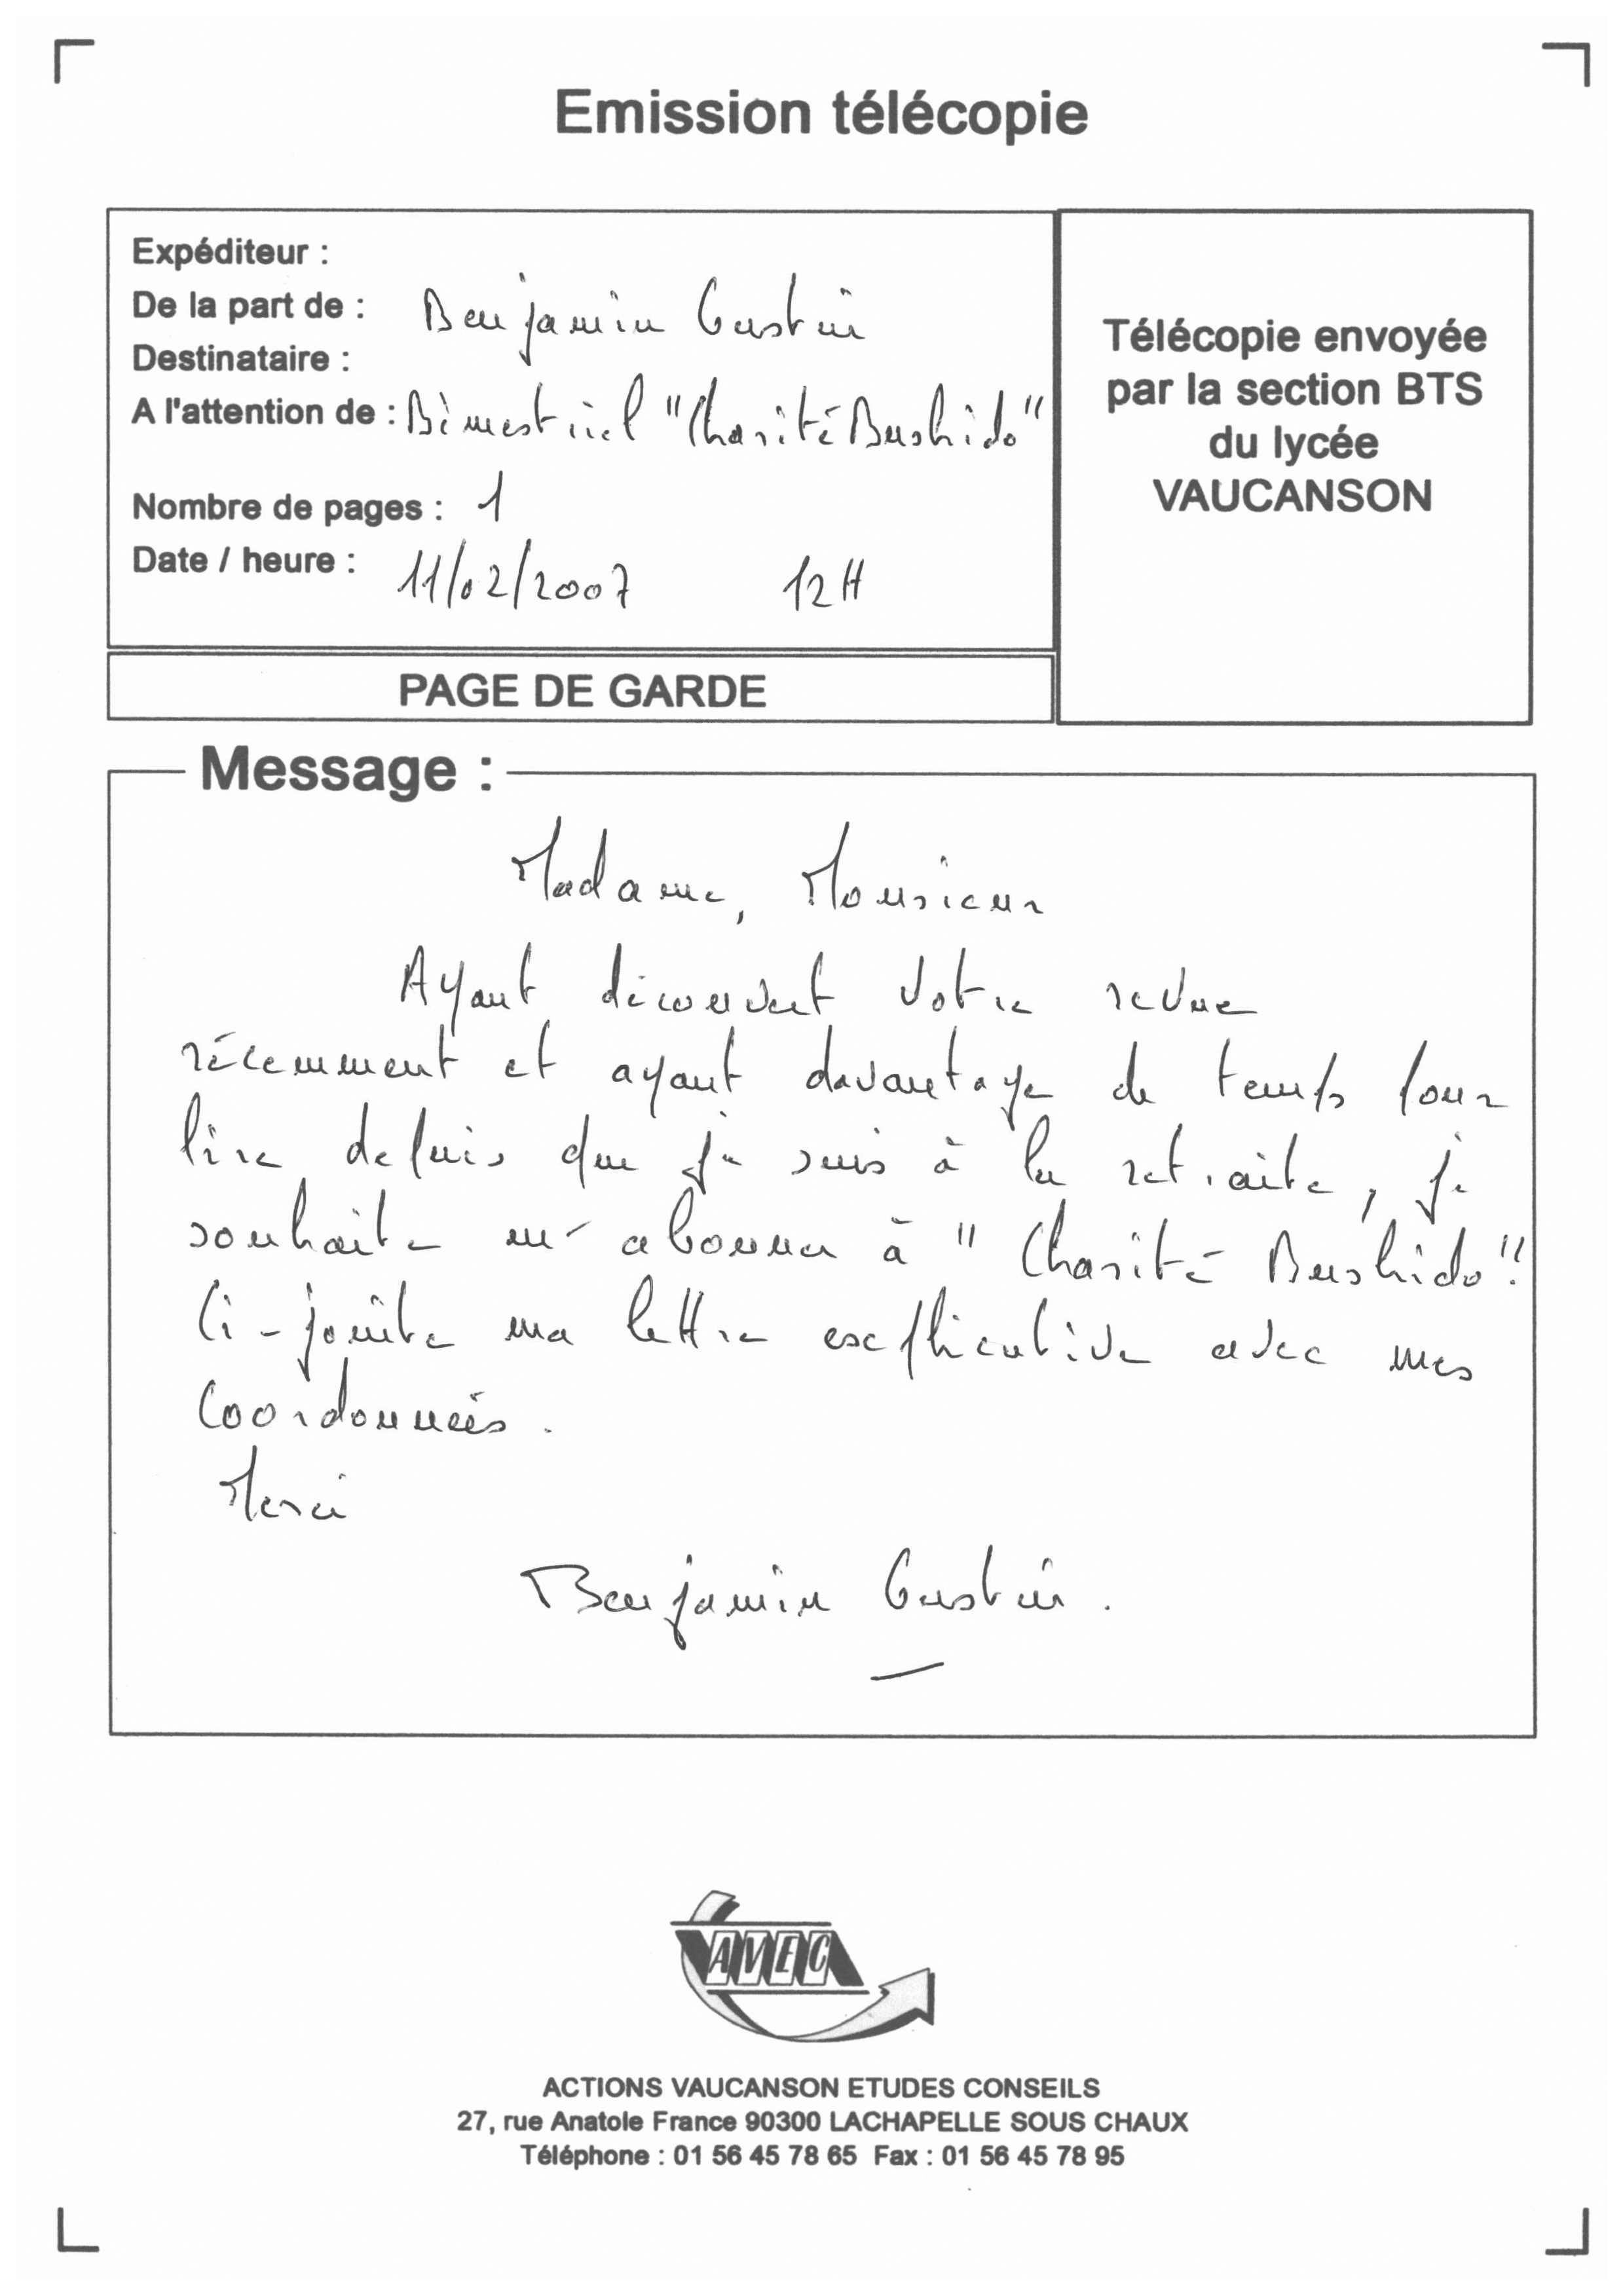 Emission télécopie
Expéditeur :
De la part de : Benjamin Gustin
Destinataire :
A l'attention de : Bimestriel "Charité Bushido"
Nombre de pages : 1
Date / heure : 11/02/2007 12H
Télécopie envoyée
par la section BTS
du lycée
VAUCANSON
PAGE DE GARDE
Message :
Madame, Monsieur
Ayant découvert votre revue
récemment et ayant davantage de temps pour
lire depuis que je suis à la retraite, je
souhaite m'abonner à "Charité Bushido".
Ci-jointe ma lettre explicative avec mes
coordonnées.
Merci
Benjamin Gustin.
AVEC
ACTIONS VAUCANSON ETUDES CONSEILS
27, rue Anatole France 90300 LACHAPELLE SOUS CHAUX
Téléphone : 01 56 45 78 65 Fax : 01 56 45 78 95